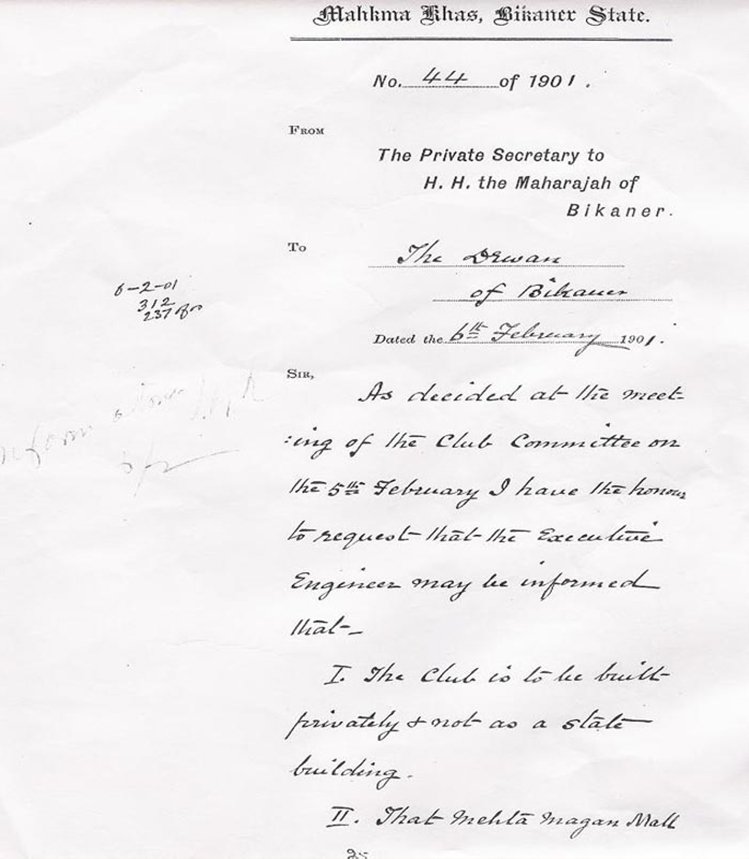 Mahkma Khas, Bikaner State.
No. 44 of 1901.
FROM
The Private Secretary to
H. H. the Maharajah of
Bikaner.
To
The Dewan
of Bikaner
Dated the 6th February 1901.
6-2-01
312
237
SIR,
As decided at the meet-
:ing of the Club Committee on
the 5th February I have the honour
to request that the Executive
Engineer may be informed
that-
I. The Club is to be built
privately & not as a state
building.
II. That Mehta Magan Mall
25